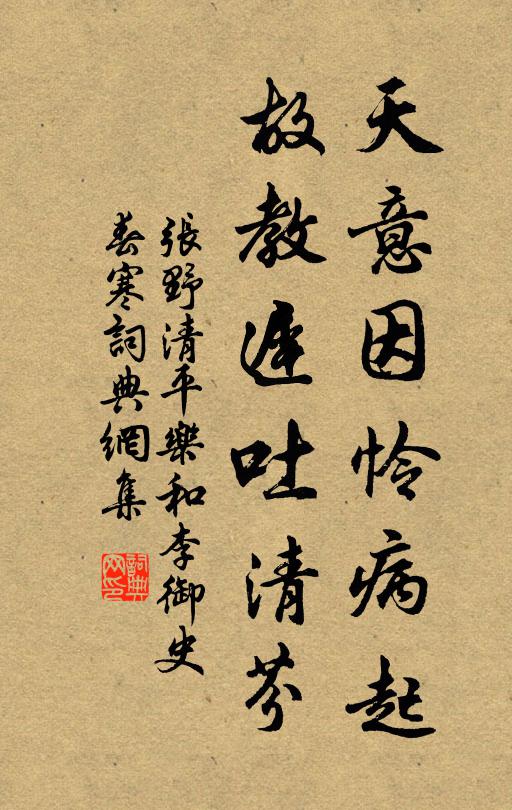 天意因怜病起
故教遲吐清芬
張野清平樂和李御史
春寒詞典網集
詞典
网印